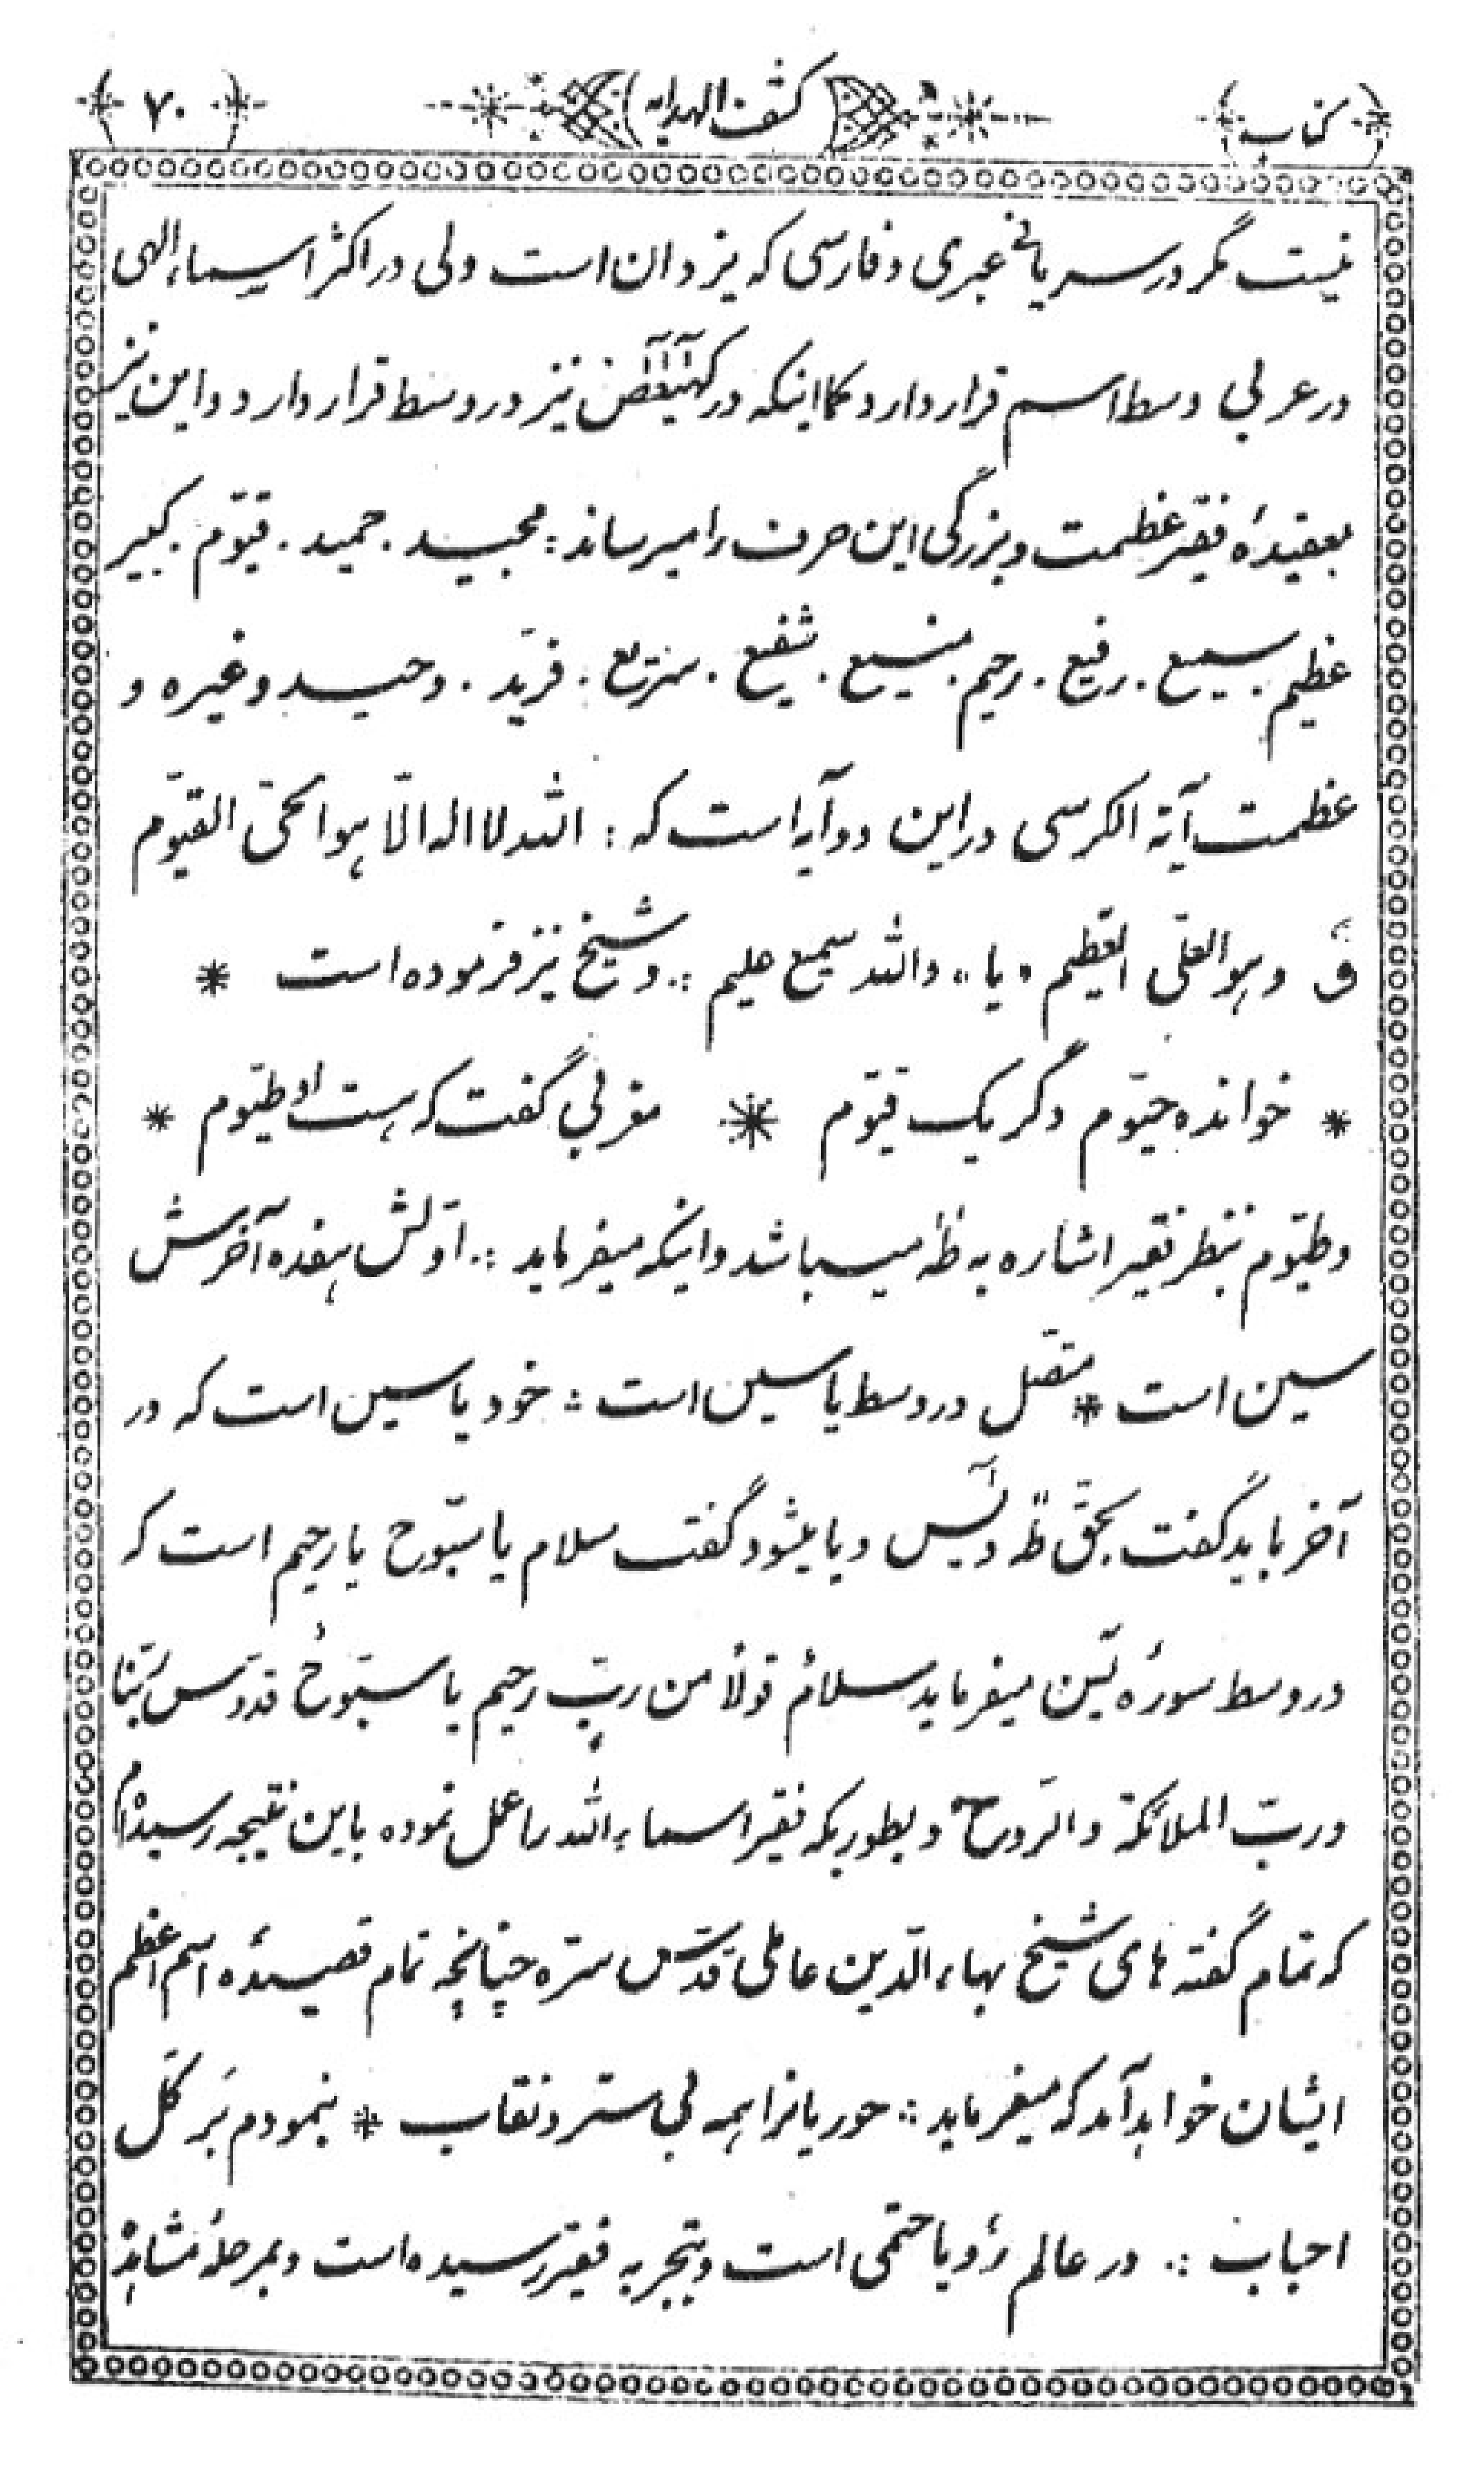 کتاب (کشف الهدایه) (۷۰)
نیست مگر در سریانی عبری و فارسی که یزدان است ولی در اکثر اسماء الهی
در عربی وسط اسم قرار دارد کما اینکه در کهیعص نیز در وسط قرار دارد و این نیز
بعقیدهٔ فقیر عظمت و بزرگی این حرف را میرساند: مجید. حمید. قیّوم. کبیر
عظیم. سمیع. رفیع. رحیم. منیع. شفیع. سریع. فرید. وحید و غیره و
عظمت آیة الکرسی در این دو آیه است که: الله لا اله الّا هو الحیّ القیّوم
قَ و هو العلّی العظیم «یا» والله سمیع علیم ∴ و شیخ نیز فرموده است *
* خوانده حیّوم دگر یک قیّوم * مغربی گفت که هست او طیّوم *
و طیّوم بنظر فقیر اشاره به طٰه میباشد و اینکه میفرماید ∴ اوّلش هفده آخرش
سین است * متّصل در وسط یاسین است ∴ خود یاسین است که در
آخر باید گفت بحّق طٰه و یٰس و یا میشود گفت سلام یا سبّوح یا رحیم است که
در وسط سورهٔ یٰسن میفرماید سلامٌ قولاً من ربّ رحیم یا سبّوحُ قدّوس ربّنا
و ربّ الملائکة و الرّوح و بطوریکه فقیر اسماء الله را عمل نموده باین نتیجه رسیده‌ام
که تمام گفته های شیخ بهاء الدّین عاملی قدّس سرّه چنانچه تمام قصیدهٔ اسم اعظم
ایشان خواهد آمد که میفرماید ∴ حوریانرا همه بی ستر و نقاب * بنمودم بَر کلّ
احباب ∴ در عالم رؤیا حتمی است و بتجربه فقیر رسیده است و بمرحلهٔ مشاهده